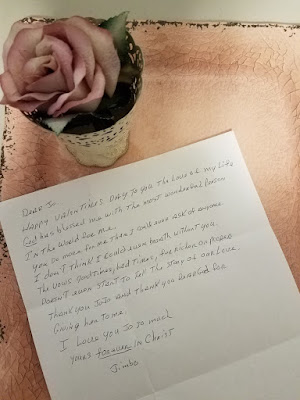 Dear Jo
Happy Valentines Day to you the love of my life
God has blessed me with the most wonderful person
in the world for me.
you do more for me than I could ever ask of anyone
I don't think I could even breath without you.
The vows good times, bad times, for richer or poorer
Doesn't even start to tell the story of our love.
Thank you JoJo and thank you Dear God for
Giving her to me.
I Love you so so much
yours forever in Christ
Jimbo